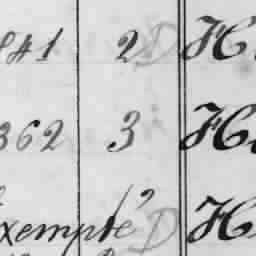 841 2 D H
362 3 H
Exempté D H